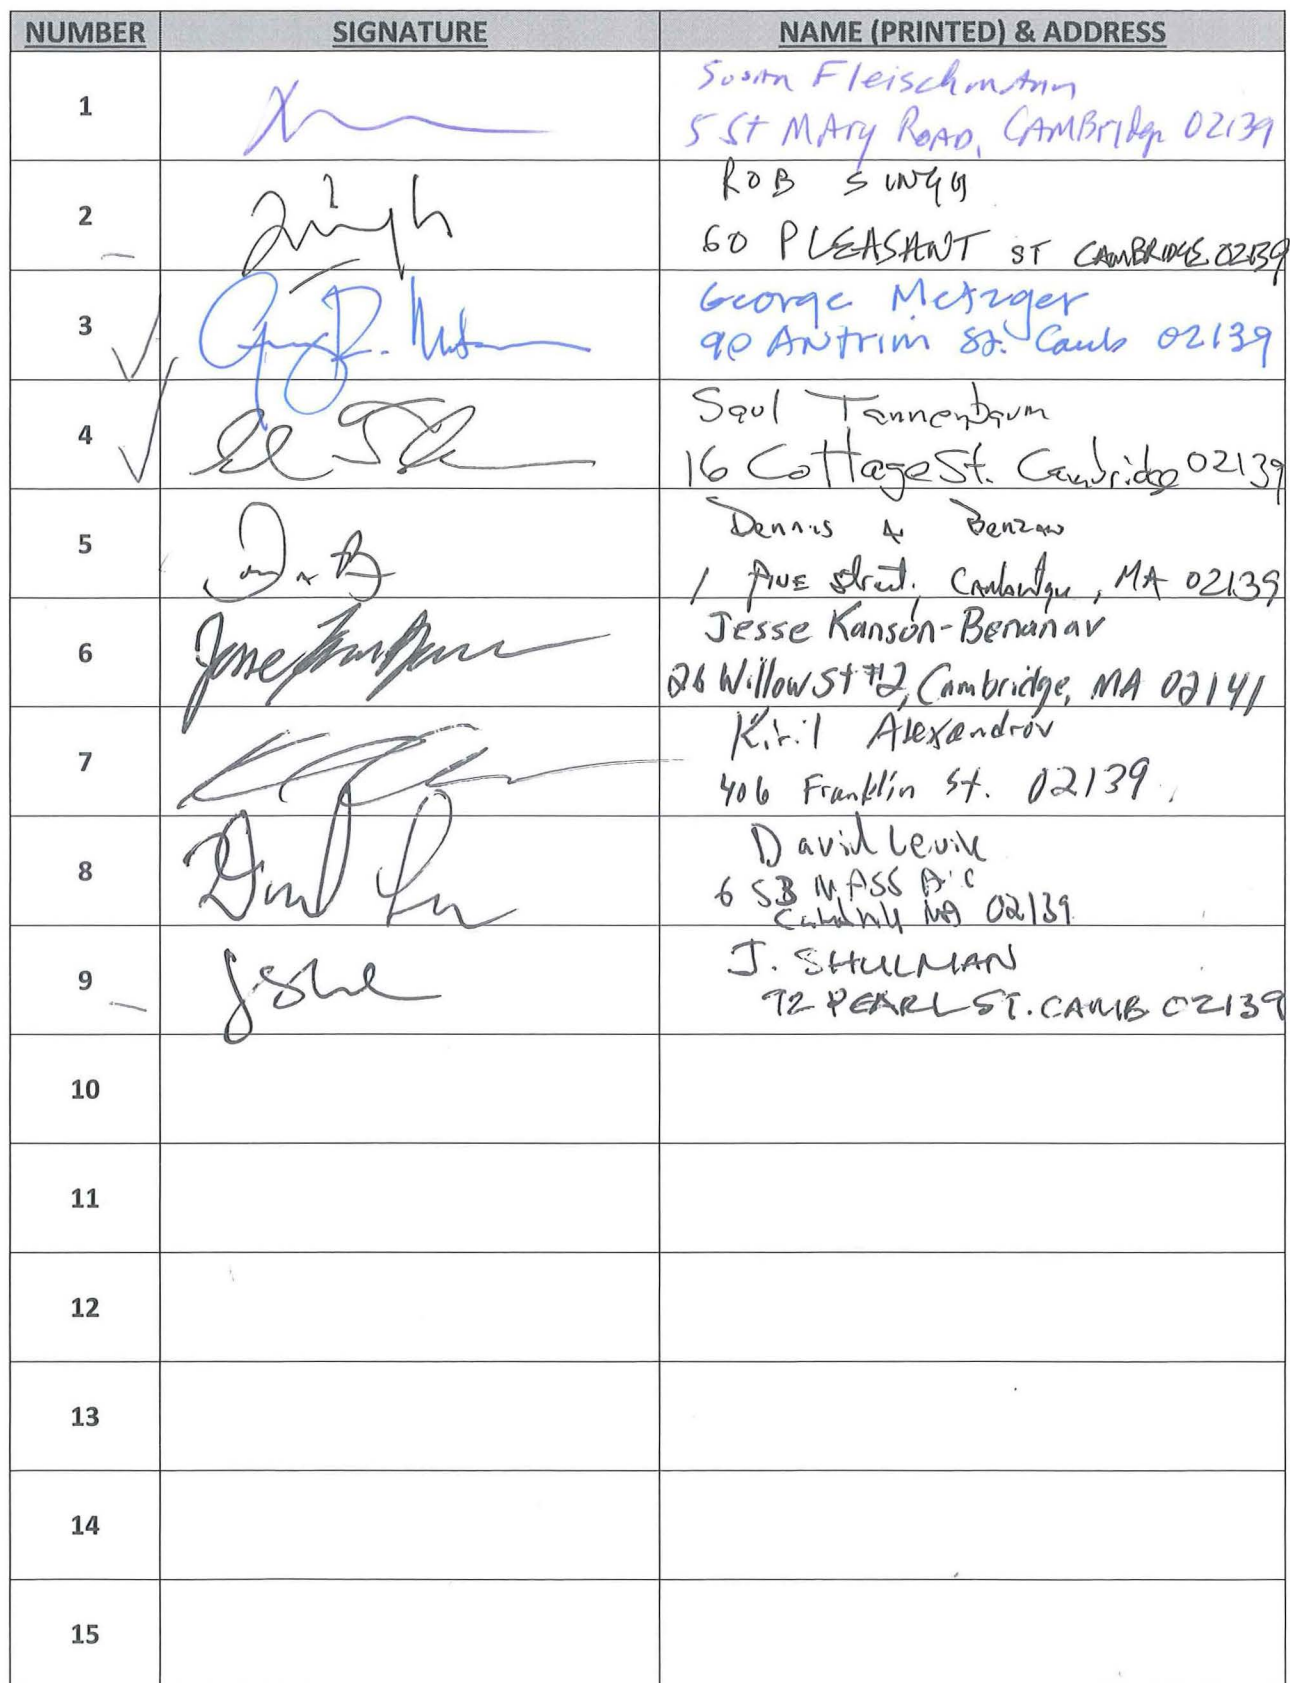 NUMBER SIGNATURE NAME (PRINTED) & ADDRESS
1 Susan Fleischmann
5 St MAry ROAD, CAMBridge 02139
2 Singh ROB SINGH
60 PLEASANT ST CAMBRIDGE 02139
3 George Metzger
90 ANtrim St. Camb 02139
4 Saul Tannenbaum
16 Cottage St. Cambridge 02139
5 Dennis A Benzan
1 Pine street, Cambridge, MA 02139
6 Jesse Kanson-Benanav
26 Willow St #2, Cambridge, MA 02141
7 Kiril Alexandrov
406 Franklin St. 02139
8 David Levin
653 MASS Ave
Cambridge MA 02139
9 J. SHULMAN
92 PEARL ST. CAMB 02139
10
11
12
13
14
15